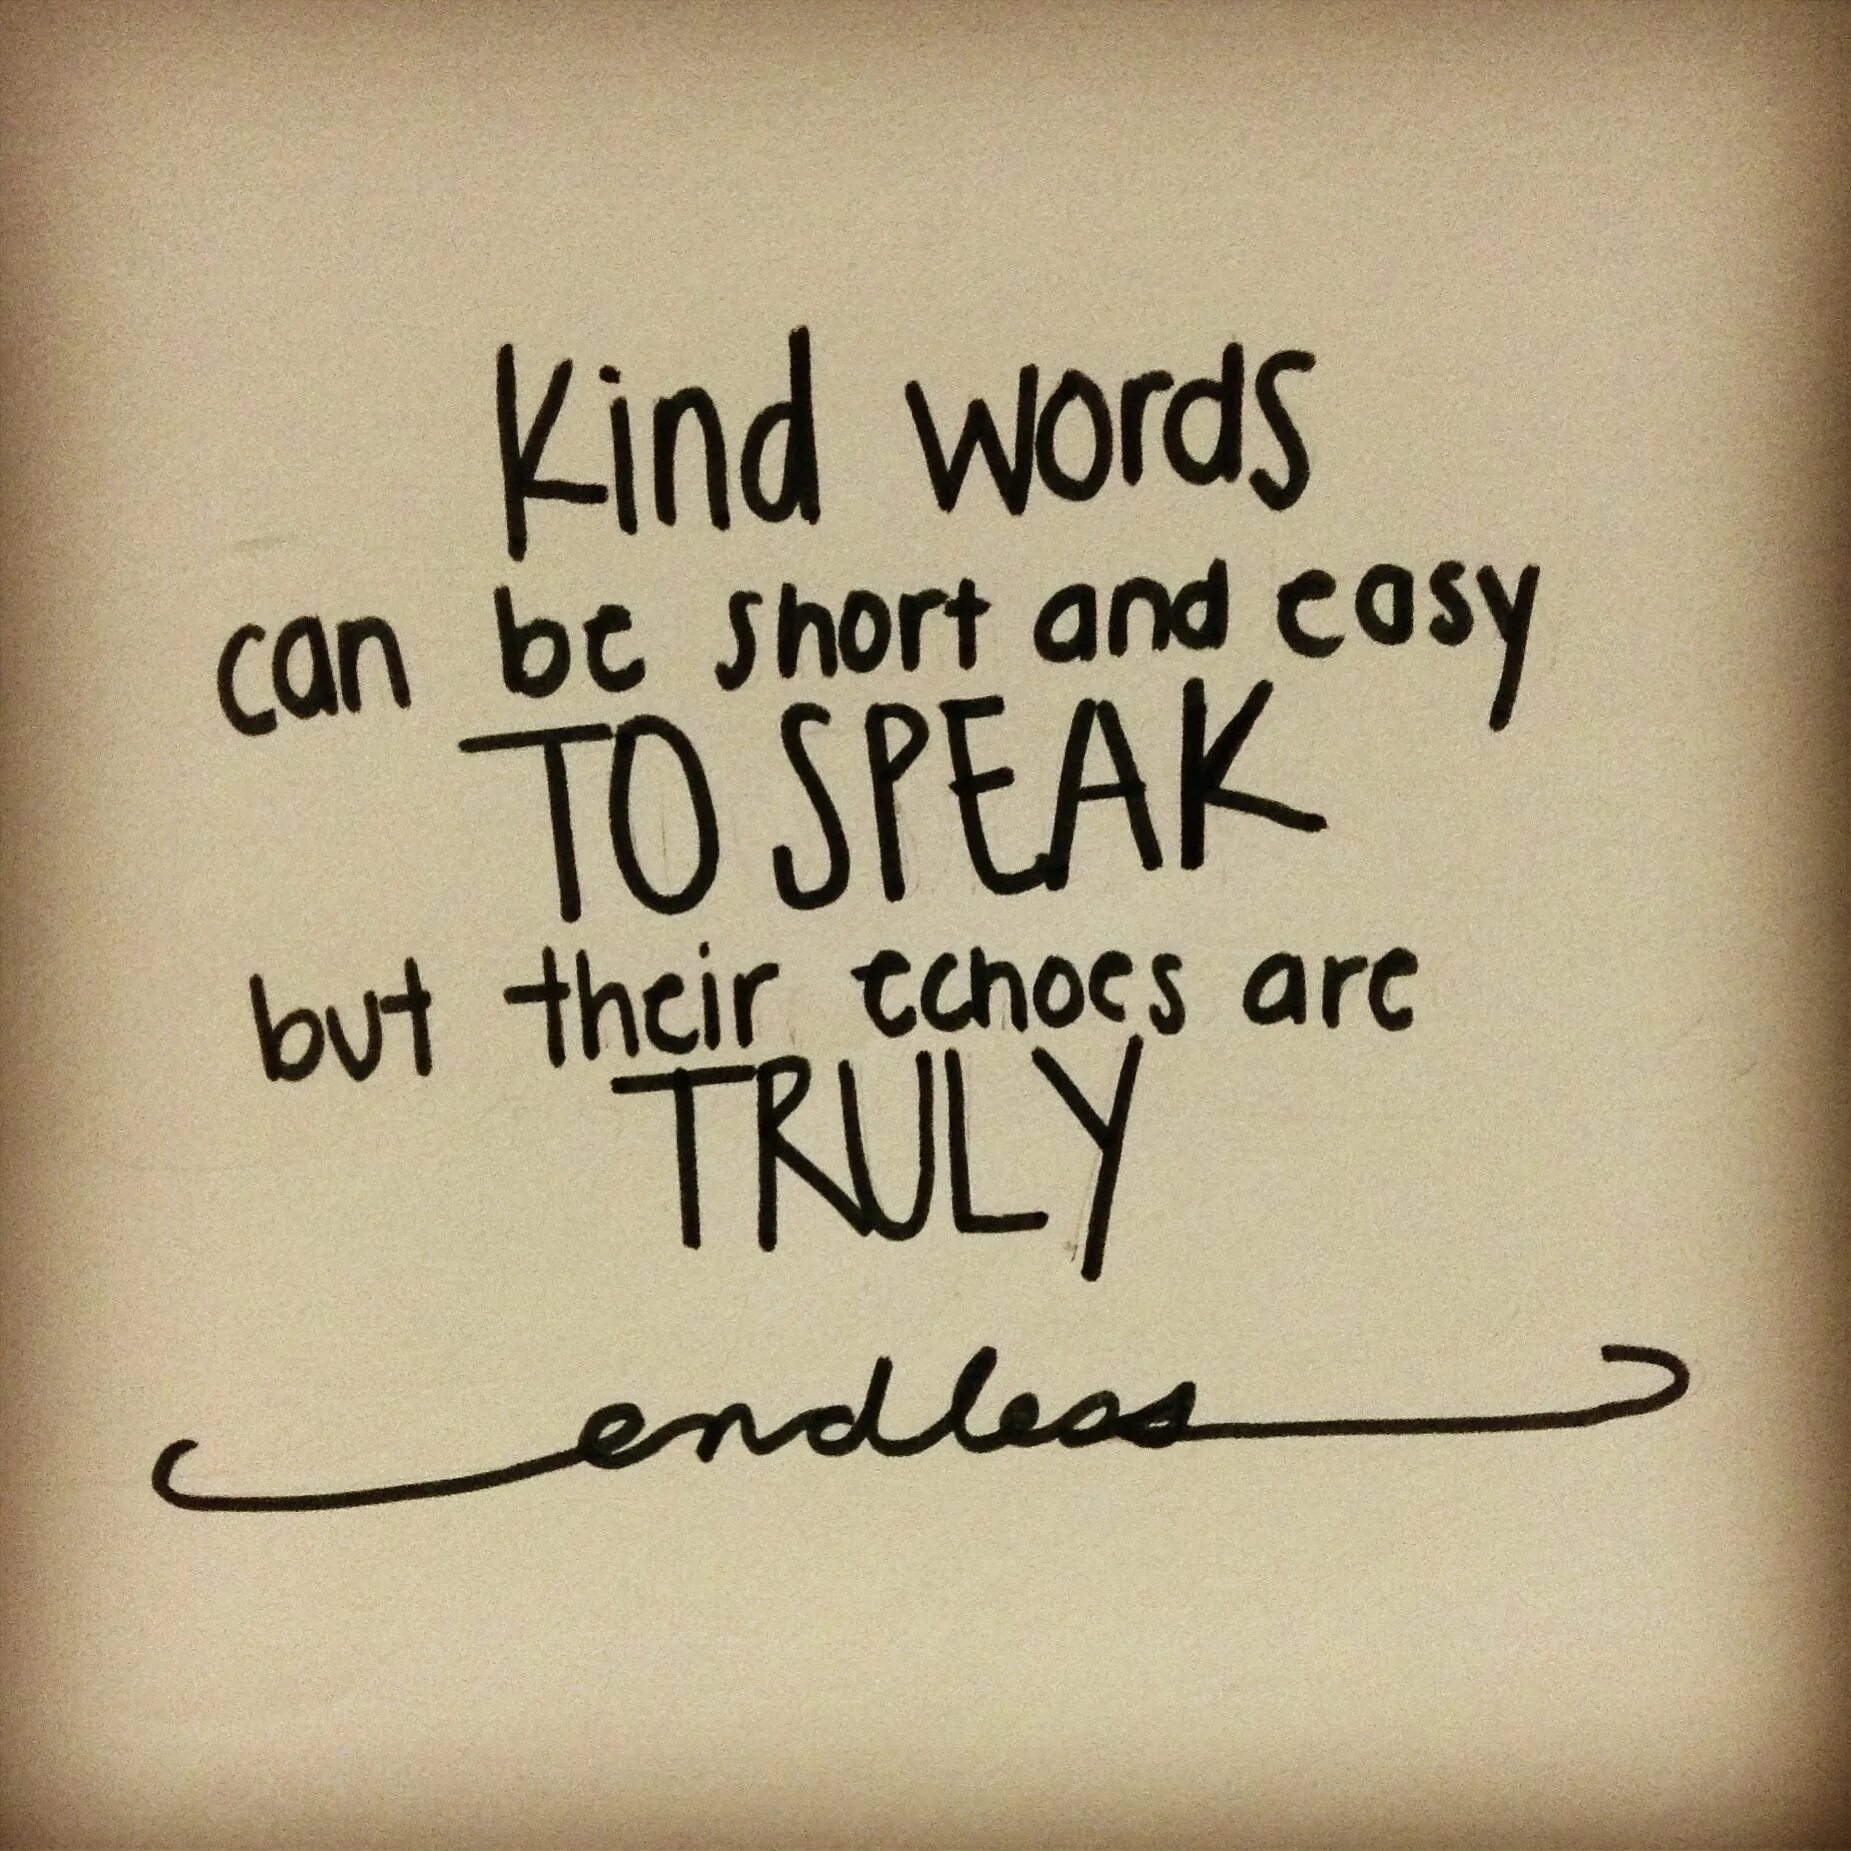 Kind words
can be short and easy
TO SPEAK
but their echoes are
TRULY
endless